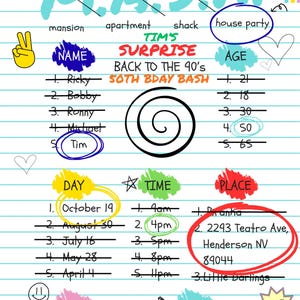 M.A.S.H.
mansion apartment shack house party
TIM'S
SURPRISE
BACK TO THE 90's
50TH BDAY BASH
NAME
1. Ricky
2. Bobby
3. Ronny
4. Michael
5. Tim
AGE
1. 21
2. 18
3. 30
4. 50
5. 65
DAY
1. October 19
2. August 30
3. July 16
4. May 28
5. April 4
TIME
1. 9am
2. 4pm
3. 5pm
4. 8pm
5. 11pm
PLACE
1. Piranha
2. 2293 Teatro Ave,
Henderson NV
89044
3. Little Darlings